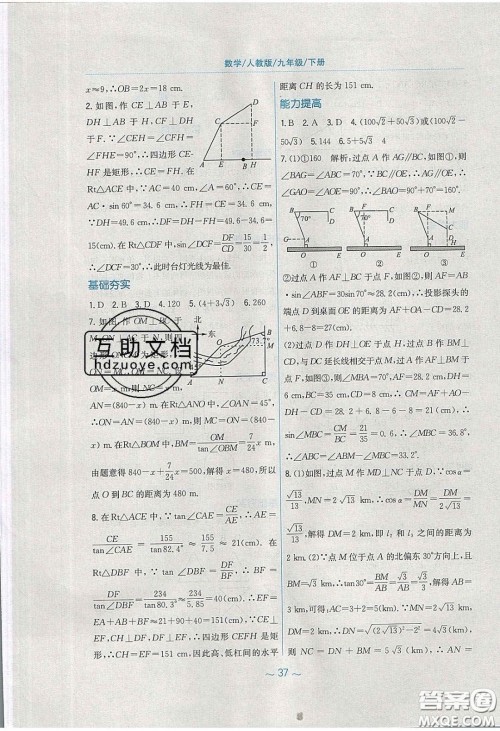 数学/人教版/九年级/下册
x≈9,∴OB=2x=18 cm.
2.如图,作 CE⊥AB 于 E,
DH⊥AB 于 H,CF⊥DH
于F.∵∠CEH=∠CFH
=∠FHE=90°,∴四边形 CE-
HF 是矩形,∴CE=FH. 在
Rt△ACE 中,∵AC=40 cm,∠A=60°,∴CE=
AC·sin 60°=34.6 cm,∴FH=CE=34.6 cm.
∵DH=49.6 cm,∴DF=DH-FH=49.6-34.6=
15(cm).在 Rt△CDF 中,sin∠DCF=DF/CD=15/30=1/2,
∴∠DCF=30°,∴此时台灯光线为最佳.
基础夯实
1.D 2.B 3.D 4.120 5.(4+3√3) 6.260
7.如图,作 OM⊥
北
东
73.7°
互助文档
hdzuoye.com
AN=(840-x) m. 在 Rt△ANO 中,∵∠OAN=45°,
∴ON=AN=(840-x) m,则 MC=ON=
(840-x) m. 在 Rt△BOM 中,BM=OM/tan∠OBM=7/24 x m,
由题意得 840-x+7/24 x=500,解得 x=480,∴点
O 到 BC 的距离为 480 m.
8.在 Rt△ACE 中,∵tan∠CAE=CE/AE,∴AE=
CE/tan∠CAE=155/tan 82.4°≈155/7.5≈21(cm). 在
Rt△DBF 中,∵tan∠DBF=DF/BF,∴BF=
DF/tan∠DBF=234/tan 80.3°≈234/5.85=40(cm). ∴EF=
EA+AB+BF≈21+90+40=151(cm).∵CE⊥
EF,CH⊥DF,DF⊥EF,∴四边形 CEFH 是矩
形,∴CH=EF=151 cm,因此高、低杠间的水平
距离 CH 的长为 151 cm.
能力提高
1.B 2.A 3.D 4.(100√2+50√3)或(100√2-
50√3) 5.144 6.5+5√3 4
7.(1)①160 解析,过点 A 作 AG∥BC,如图①,则
∠BAG=∠ABC=70°.∵BC∥OE,∴AG∥OE,
∴∠GAO=∠AOE=90°,∴∠BAO=90°+70°=160°.
① ② ③
②过点 A 作 AF⊥BC 于点 F,如图②,则 AF=
AB·sin∠ABF=30sin 70°≈28.2(cm),∴投影探头的
端点 D 到桌面 OE 的距离为 AF+OA-CD=28.2
+6.8-8=27(cm).
(2)过点 D 作 DH⊥OE 于点 H,过点 B 作 BM⊥
CD,与 DC 延长线相交于点 M,过点 A 作 AF⊥BM
于点 F,如图③,则∠MBA=70°,AF=28.2 cm,DH=6
cm,BC=35 cm,CD=8 cm,∴CM=AF+AO-
DH-CD=28.2+6.8-6-8=21(cm),∴
sin∠MBC=CM/BC=21/35=0.6,∴∠MBC=36.8°,
∴∠ABC=∠ABM-∠MBC=33.2°.
8.(1)如图,过点 M 作 MD⊥NC 于点 D.∵cosα=
√13/4,MN=2√13 km,∴cosα=DM/MN=DM/2√13=
√13/13,解得 DM=2 km,即 l₁ 和 l₂ 之间的距离为
2 km. (2)∵点 M 位于点 A 的北偏东 30°方向上,且
BM=√3 km,∴tan30°=BM/AB=√3/AB=√3/3,解得 AB=
3 km.可得 AC=3+2=5(km).∵MN=2√13 km,
DM=2 km,∴DN=√((2√13)²-2²)=4√3(km),
则 NC=DN+BM=5√3(km),∴AN=
~ 37 ~
答案圈
MXQE.COM